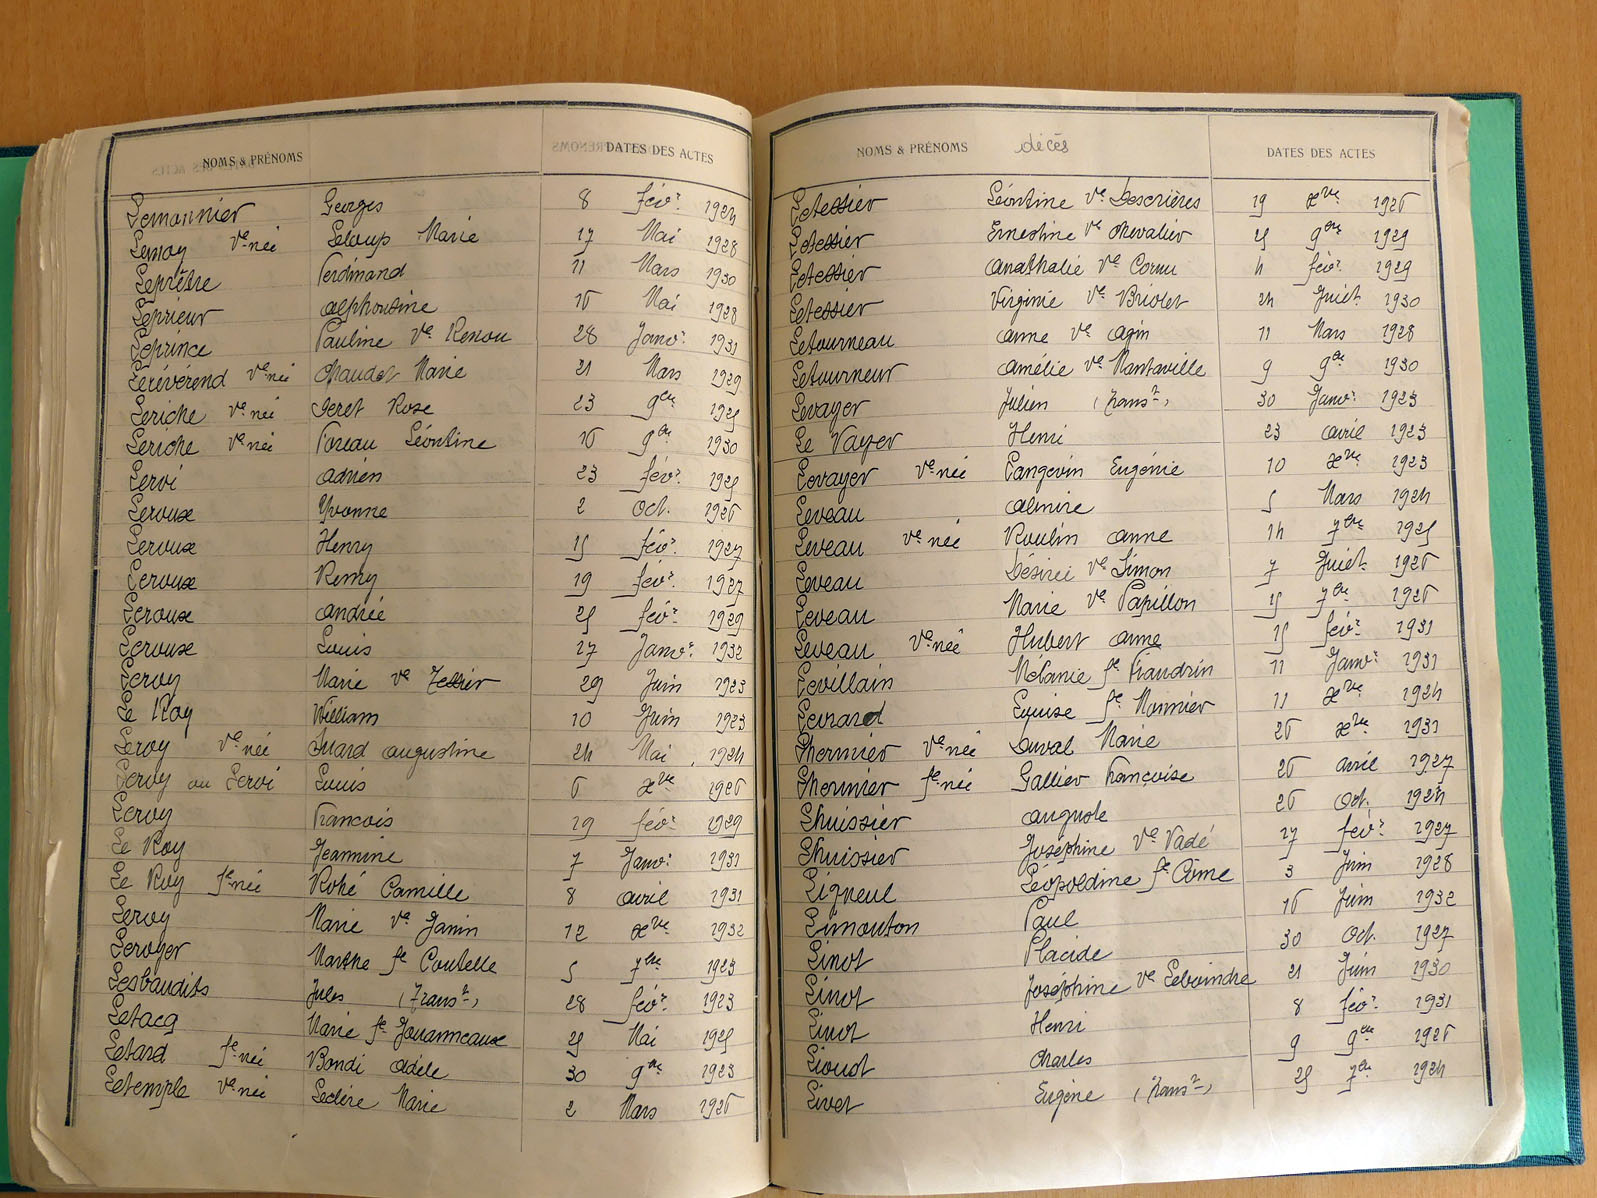 NOMS & PRÉNOMS DATES DES ACTES
Lemonnier Georges 8 févr. 1924
Lemoy ve née Leloup Marie 17 Mai 1928
Leprêtre Ferdinand 11 Mars 1930
Leprieur alphonsine 16 Mai 1928
Leprince Pauline ve Renou 28 Janvr. 1931
Lerévérend ve née Chaudet Marie 21 Mars 1929
Leriche ve née Rose 23 9bre 1925
Leriche ve née Moreau Léontine 16 9bre 1930
Leroi adrien 23 févr. 1925
Leroux Yvonne 2 Oct. 1926
Leroux Henry 15 févr. 1927
Leroux Remy 19 févr. 1927
Leroux andrée 25 févr. 1929
Leroux Louis 27 Janvr. 1932
Leroy Marie ve Tessier 29 Juin 1923
Le Roy William 10 Juin 1923
Leroy ve née augustine 24 Mai 1924
Leroy ou Leroi Louis 6 xbre 1926
Leroy Francois 19 févr. 1929
Le Roy Jeannine 7 Janvr. 1931
Le Roy fe née Rohé Camille 8 avril 1931
Leroy Marie ve Janin 12 xbre 1932
Leroyer Marthe fe Coutelle 5 7bre 1923
Lesbaudits Jules (Transon) 28 févr. 1923
Letacq Marie fe Jouanneaux 25 Mai 1925
Letard fe née Bondi adèle 30 9bre 1923
Letemple ve née Leclère Marie 2 Mars 1926
NOMS & PRÉNOMS décès DATES DES ACTES
Letessier Léontine ve Descrières 19 xbre 1926
Letessier Ernestine ve Chevalier 25 9bre 1929
Letessier anathalie ve Cornu 4 févr. 1929
Letessier Virginie ve Briolet 24 Juiet. 1930
Letourneau anne ve agin 11 Mars 1928
Letourneur amélie ve Mantaville 9 9bre 1930
Levayer Julien (Transon) 30 Janvr. 1923
Le Vayer Henri 23 avril 1923
Levayer ve née Langevin Eugénie 10 xbre 1923
Leveau almire 5 Mars 1924
Leveau ve née Roulin anne 14 7bre 1925
Leveau Désirée ve Simon 7 Juiet. 1926
Leveau Marie ve Papillon 15 7bre 1926
Leveau ve née Hubert anne 15 févr. 1931
Levillain Mélanie fe Flandrin 11 Janvr. 1931
Levrard Louise fe Monnier 11 xbre 1924
Lhermier ve née Duval Marie 26 xbre 1931
Lhermier fe née Gallier Françoise 26 avril 1927
Lhuissier auguste 26 Oct. 1924
Lhuissier Joséphine ve Vadé 17 févr. 1927
Ligneul Léopoldine fe Côme 3 Juin 1928
Limouton Paul 16 Juin 1932
Linot Placide 30 Oct. 1927
Linot Joséphine ve Leboindre 21 Juin 1930
Linot Henri 8 févr. 1931
Lioust Charles 9 9bre 1926
Livet Eugène (Transon) 25 7bre 1924